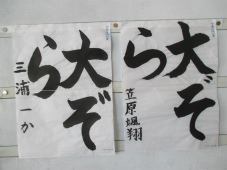 大ぞ
ら
三浦一か
大ぞ
ら
笠原颯翔